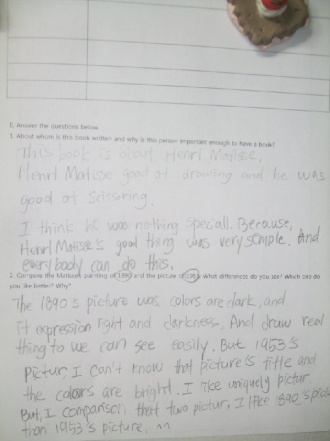 E. Answer the questions below.
1. About whom is this book written and why is this person important enough to have a book?
This book is about Henri Matisse,
Henri Matisse good at drawing and he was
good at scissoring.
I think he was nothing speciall. Because,
Henri Matisse's good thing was very semple. And
everybody can do this.
2. Compare the Matisse's painting of 1890 and the picture of 1953. What differences do you see? Which one do
you like better? Why?
The 1890's picture was colors are dark, and
it expression right and darkness, And draw real
thing to we can see easily. But 1953's
Pictur, I can't know that picture's title and
the colors are bright. I like uniquely pictur
But, I comparison that two pictur, I like 1890's pictur
than 1953's picture. ^^